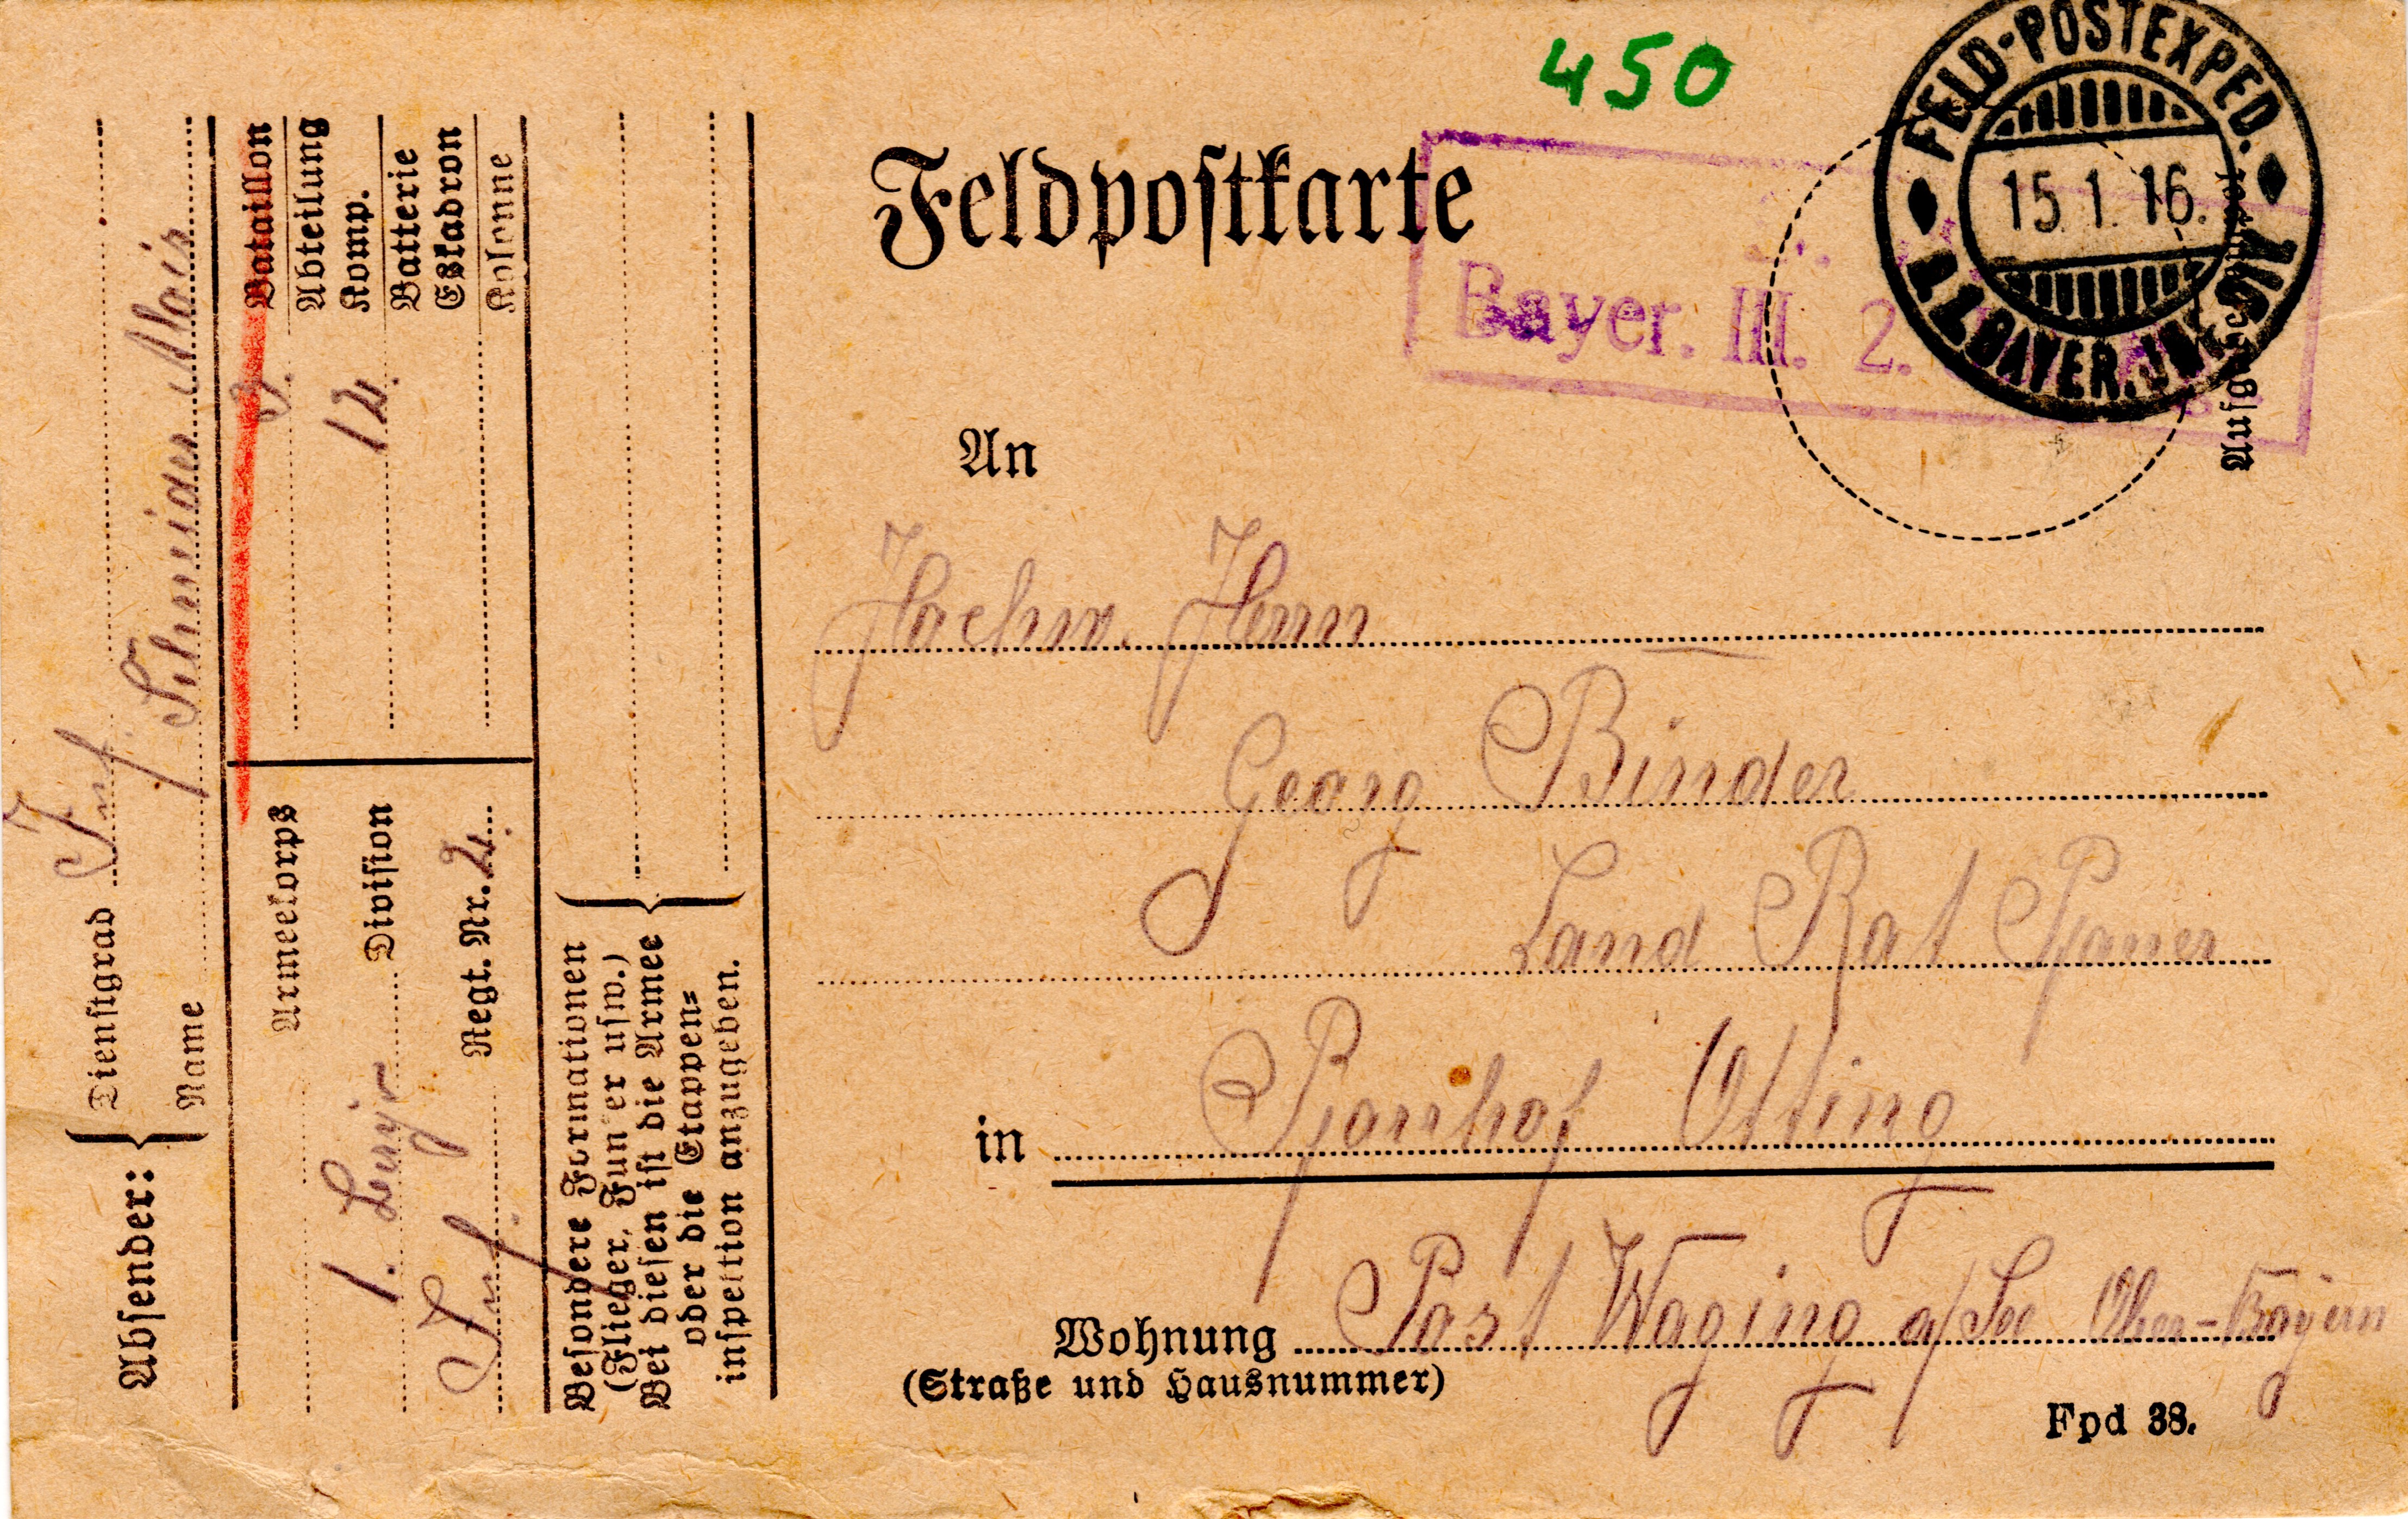 450
Feldpostkarte
FELD-POSTEXPED.
15.1.16.
BAYER. INF.
Bayer. III. 2.
An
Hochw. Herrn
Georg Binder
Land Rat Pfarrer
in Pfarrhof Otting
Wohnung Post Waging a/See Ober-Bayern
(Straße und Hausnummer)
Fpd 38.
Absender:
Dienstgrad Inf.
Name Schneider Alois
Armeekorps
1. Division
Inf. Regt. Nr. 2.
Bataillon
Abteilung
Komp. 12.
Batterie
Eskadron
Kolonne
Besondere Formationen
(Flieger, Funker usw.)
Bei diesen ist die Armee
oder die Etappen-
inspektion anzugeben.